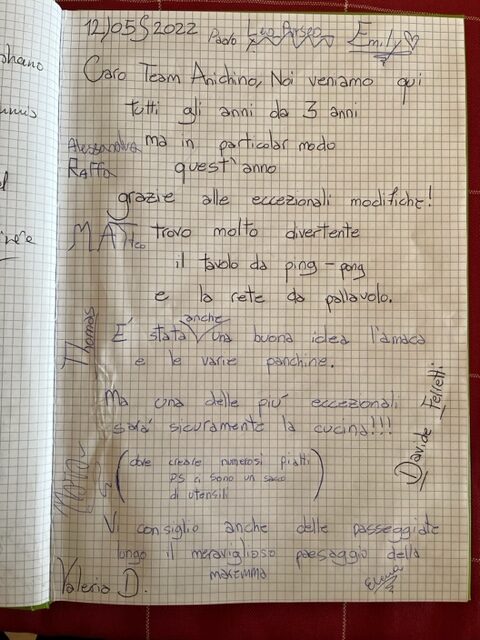 12/05/2022 Paolo Emily
Caro Team Anichino, Noi veniamo qui
tutti gli anni da 3 anni
Alessandra ma in particolar modo
Raffa quest'anno
grazie alle eccezionali modifiche!
MATteo trovo molto divertente
il tavolo da ping-pong
e la rete da pallavolo.
Thomas
anche
E' stata una buona idea l'amaca
e le varie panchine.
Davide Ferretti
Ma una delle più eccezionali
sara' sicuramente la cucina!!!
(dove creare numerosi piatti
PS ci sono un sacco
di utensili)
Vi consiglio anche delle passeggiate
lungo il meraviglioso paesaggio della
maremma
Elena
Valeria D.